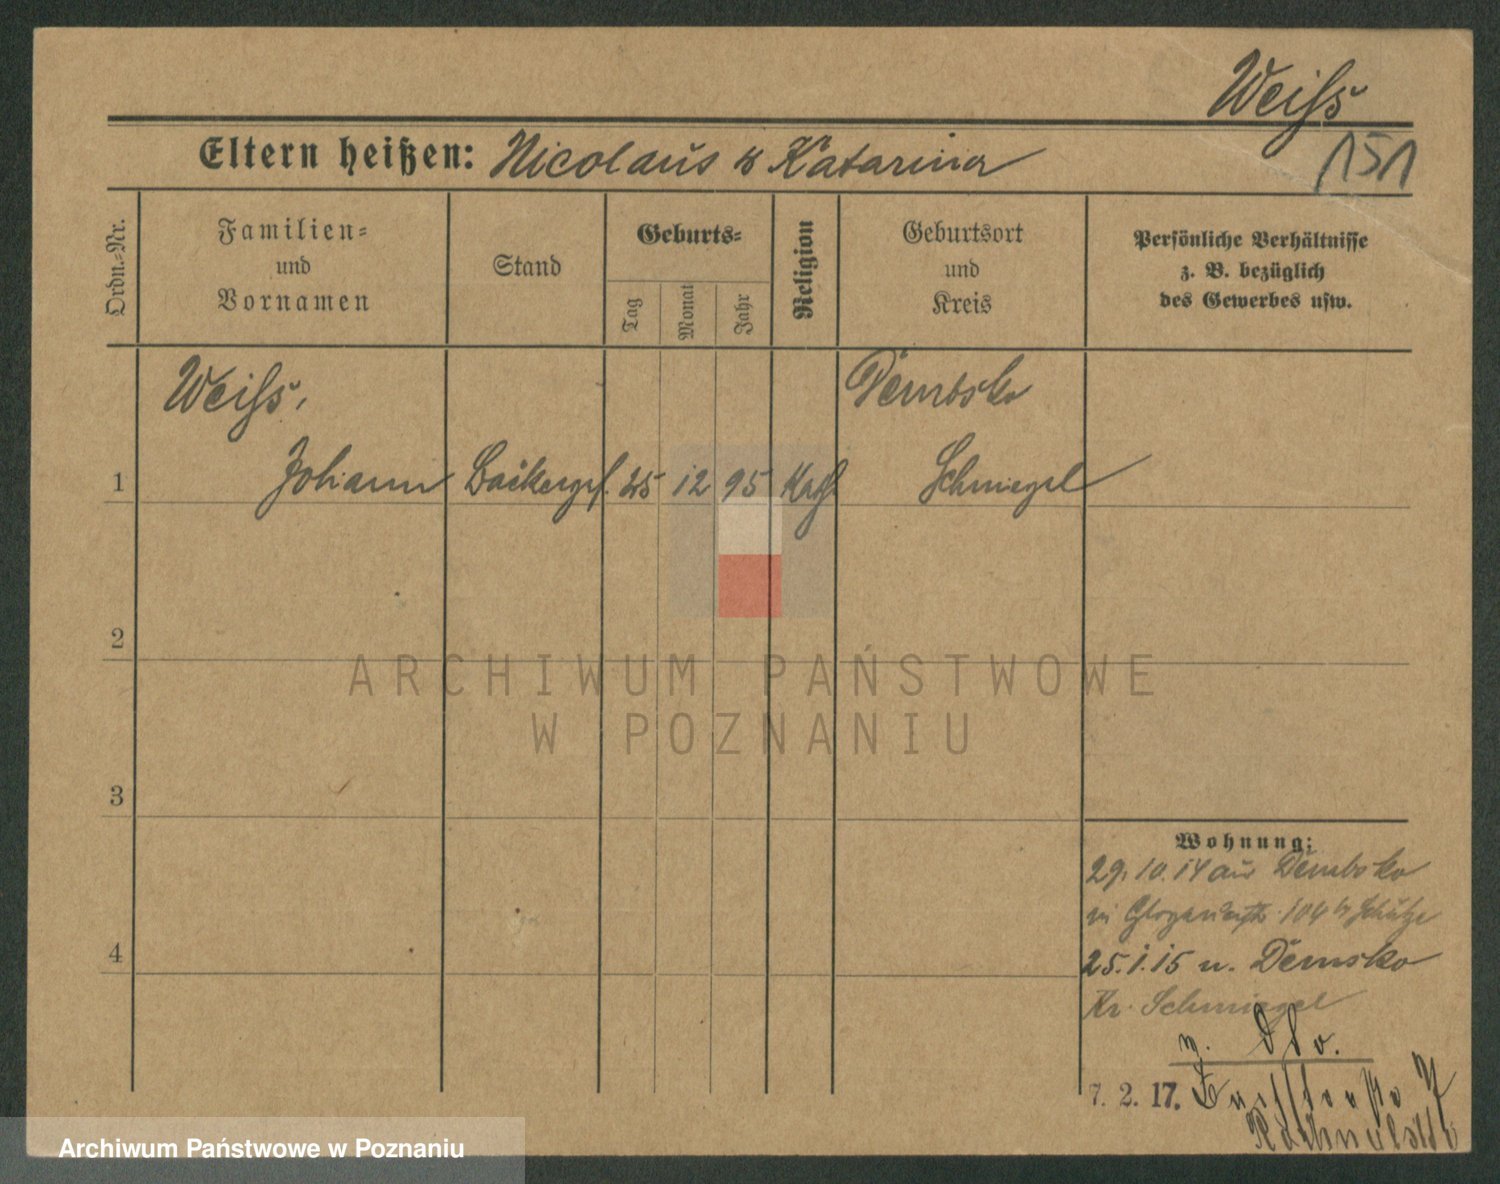 Weiſs
Eltern heißen: Nicolaus & Katarina
151
Ordn.-Nr.
Familien-
und
Vornamen
Stand
Geburts-
Tag
Monat
Jahr
Religion
Geburtsort
und
Kreis
Persönliche Verhältnisse
z. B. bezüglich
des Gewerbes usw.
Weiſs,
Dembsko
1 Johann 25 12 95 Kath Schmiegel
2
ARCHIWUM PAŃSTWOWE
W POZNANIU
3
Wohnung:
29.10.14 aus Dembsko
104 Schütze
4
25.1.15 n. Demsko
Kr. Schmiegel
n.
7. 2. 17.
Archiwum Państwowe w Poznaniu